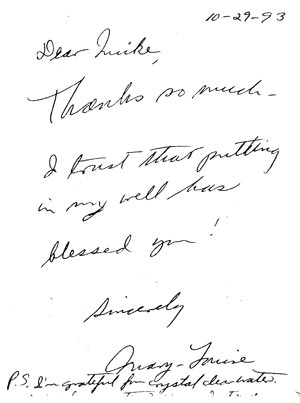 10-29-93
Dear Mike,
Thanks so much-
I trust that putting
in my well has
blessed you!
Sincerely
Mary-Louise
P.S. I'm grateful for crystal clear water.